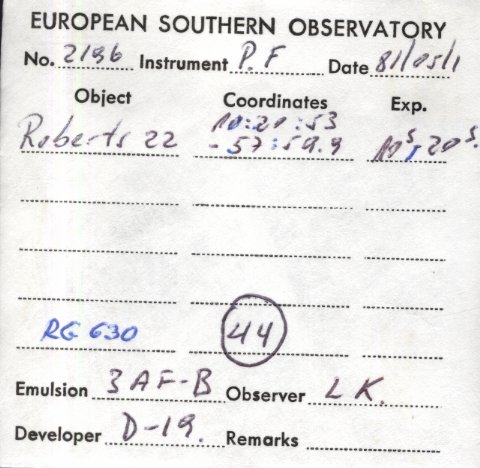 EUROPEAN SOUTHERN OBSERVATORY
No. 2196 Instrument P.F Date 81/05/1
Object Coordinates Exp.
Roberts 22 10:20:53
-57:59.9 10s, 20s.
RG 630 44
Emulsion 3AF-B Observer LK.
Developer D-19. Remarks